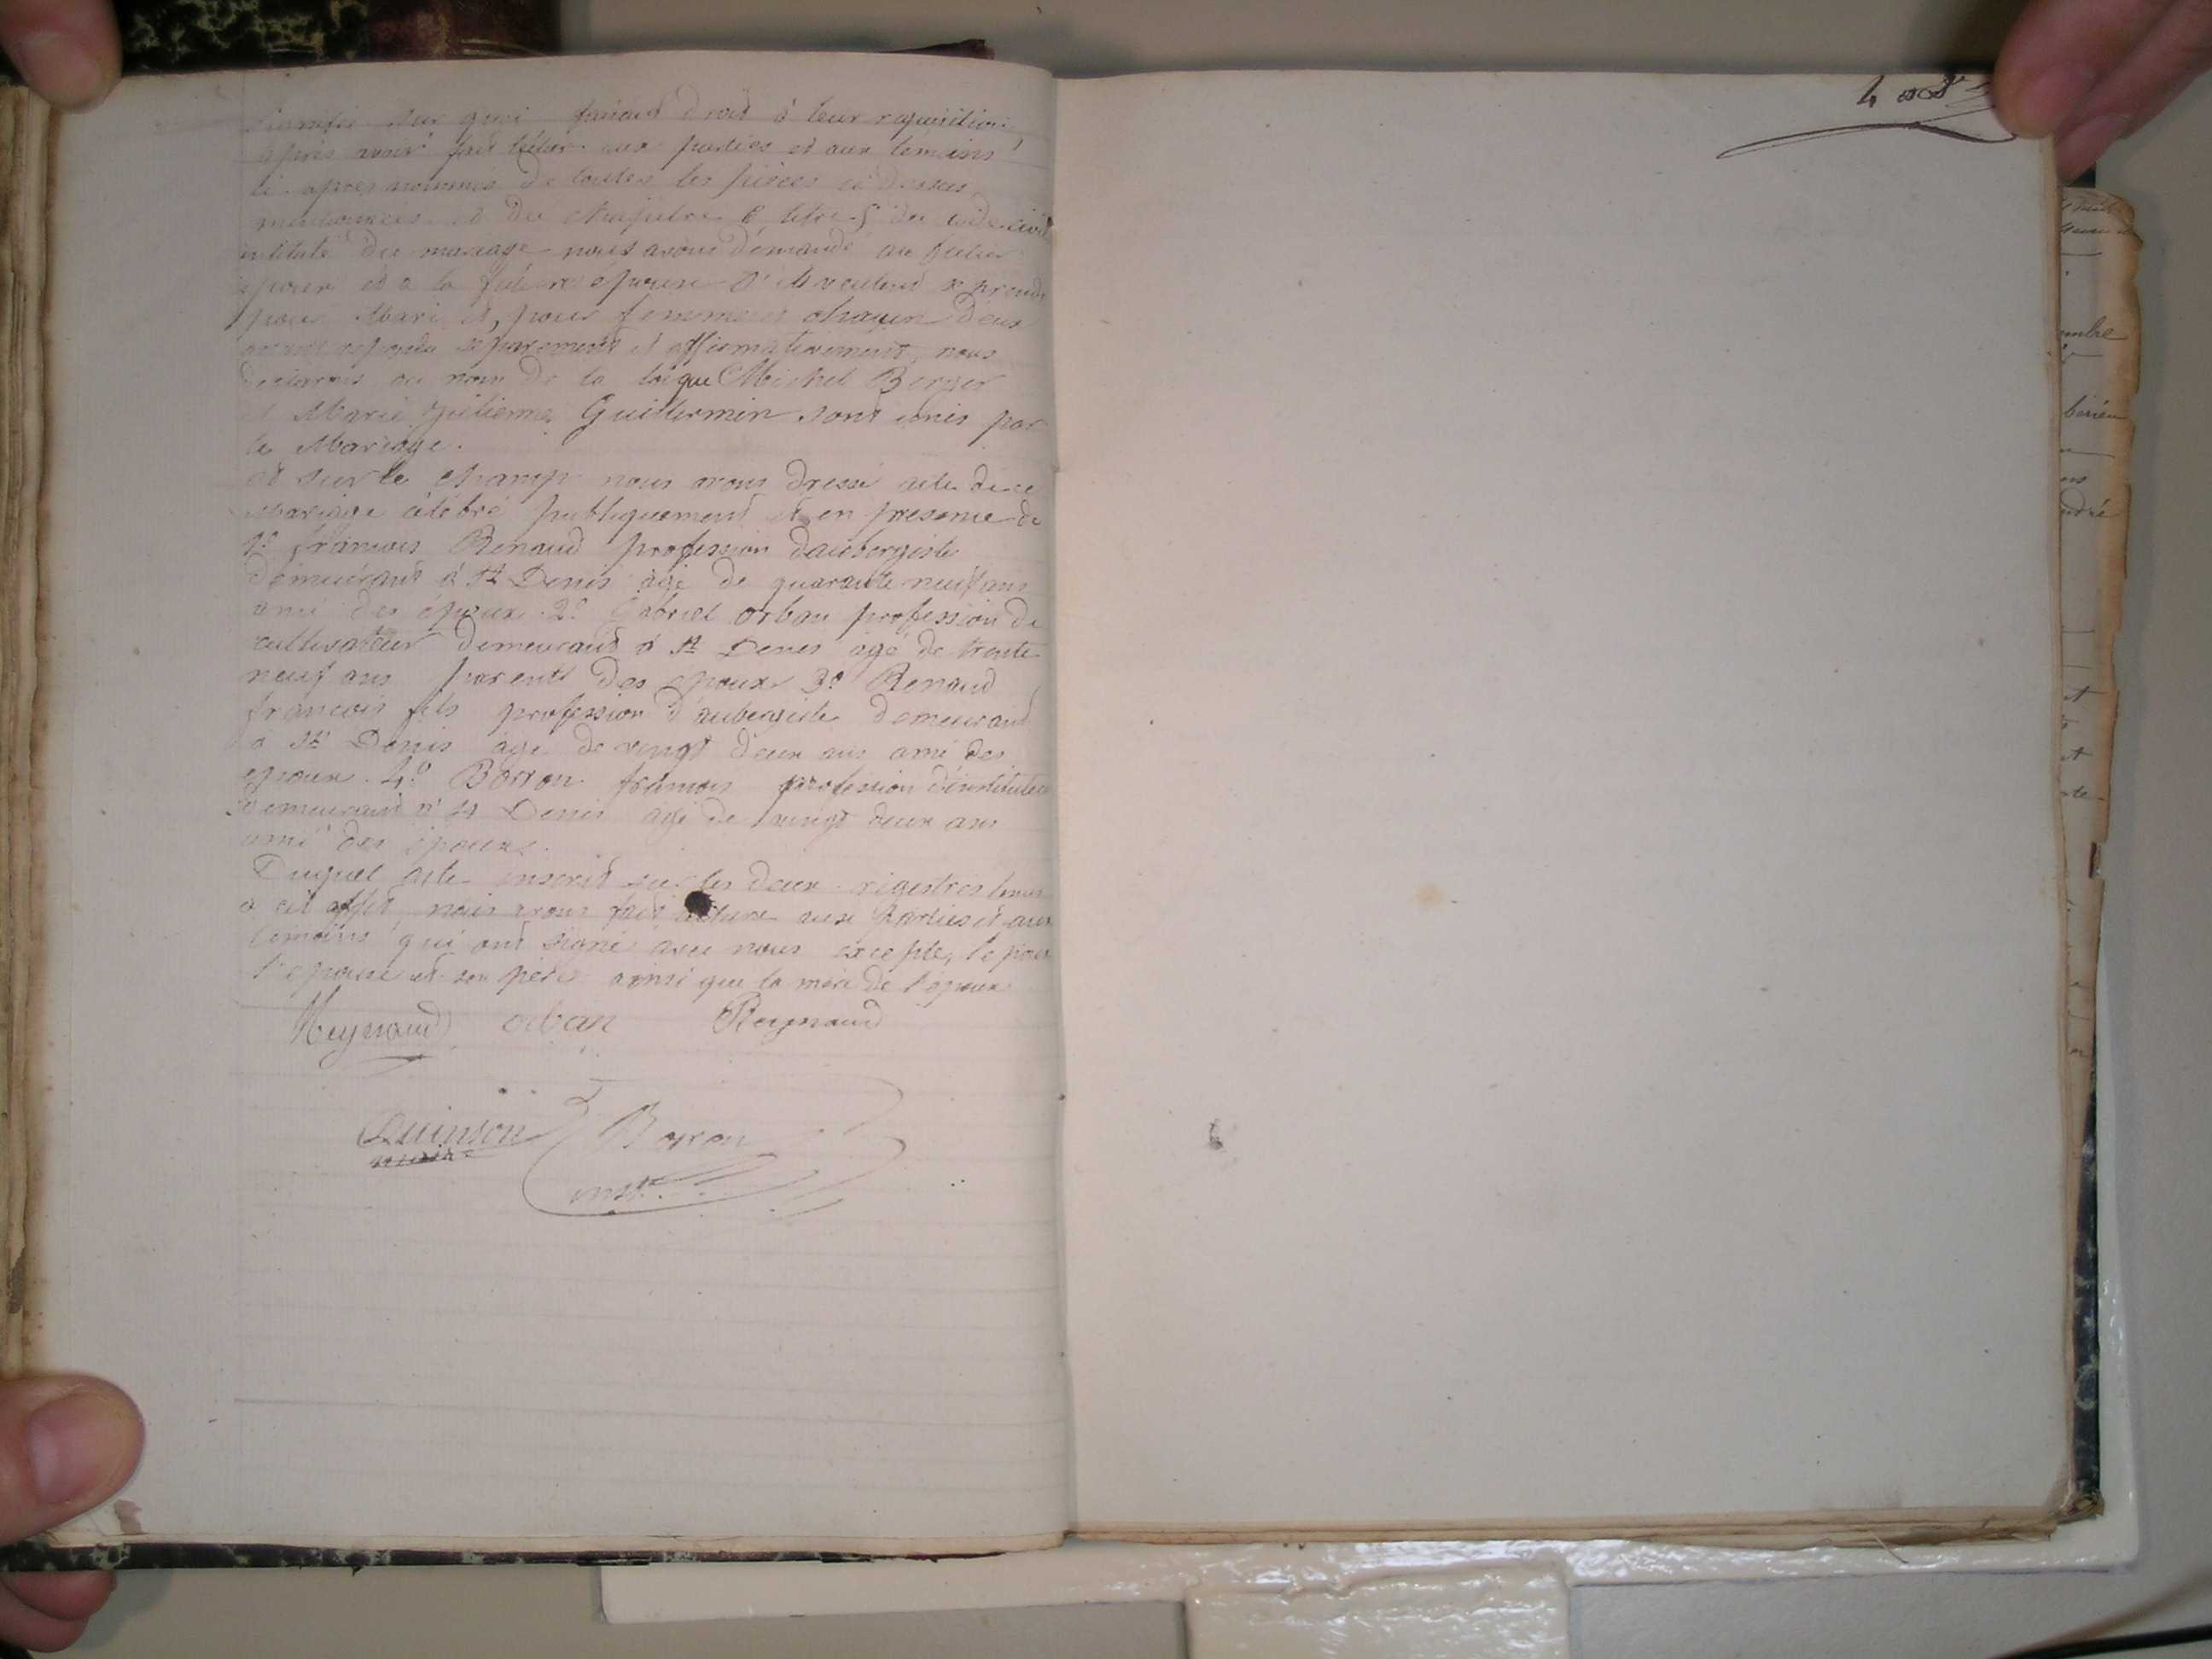 sur quoi faisant droit à leur requisition,
après avoir fait lecture aux parties et aux temoins
ci-apres nommés de toutes les pièces ci dessus
mentionnées et du chapitre 6 titre 5 du code civil
intitulé du mariage nous avons demandé au futur
époux et a la future epouse s'ils veulent se prendre
pour Mari et, pour femme chaqun d'eux
ayant repondu separement et affirmativement, nous
declarons au nom de la loi que Michel Berger
et Marie Guillermin sont unis par
le Mariage.
et sur le champ nous avons dressé acte de ce
mariage célébré publiquement et en presence de
1º francois Renaud profession d'aubergiste
demeurant à St Denis agé de quarante neuf ans
ami des époux. 2º Gabriel orban profession de
cultivateur demeurant à St Denis agé de trente
neuf ans parent des epoux 3º Renaud
francois fils profession d'aubergiste demeurant
à St Denis agé de vingt deux ans ami des
epoux. 4º Borron francois profession d'instituteur
demeurant à St Denis agé de vingt deux ans
ami des époux.
Duquel acte inscrit sur les deux régistres tenus
a cet effet, nous avons fait lecture aux Parties et aux
temoins qui ont signé avec nous excepte, l'epoux
l'epouse et son père ainsi que la mère de l'epoux
Meynaud orban Reynaud
Quinson Borron
inst.
4